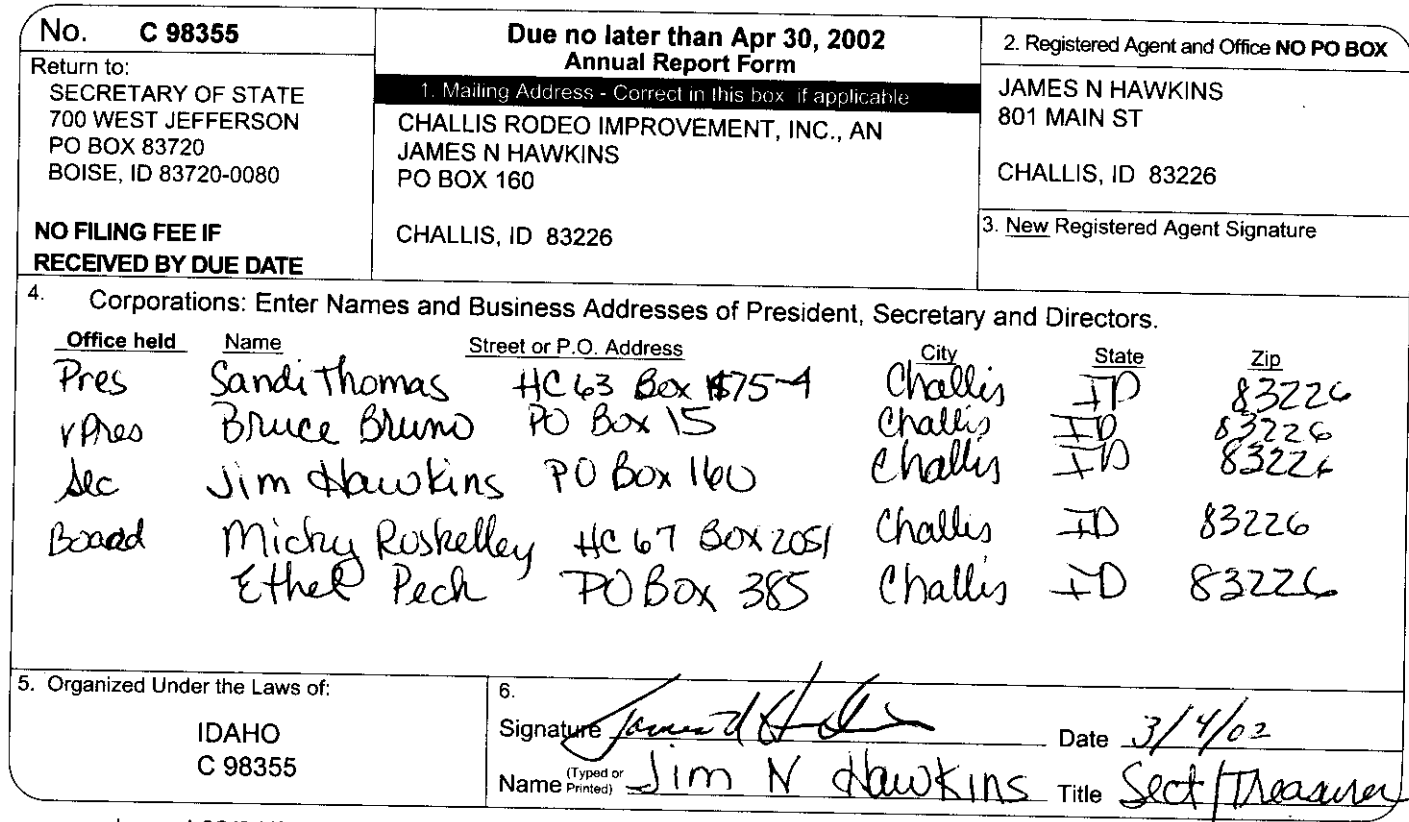 No. C 98355
Return to:
SECRETARY OF STATE
700 WEST JEFFERSON
PO BOX 83720
BOISE, ID 83720-0080
NO FILING FEE IF
RECEIVED BY DUE DATE
Due no later than Apr 30, 2002
Annual Report Form
1. Mailing Address - Correct in this box if applicable
CHALLIS RODEO IMPROVEMENT, INC., AN
JAMES N HAWKINS
PO BOX 160
CHALLIS, ID 83226
2. Registered Agent and Office NO PO BOX
JAMES N HAWKINS
801 MAIN ST
CHALLIS, ID 83226
3. New Registered Agent Signature
4. Corporations: Enter Names and Business Addresses of President, Secretary and Directors.
Office held Name Street or P.O. Address City State Zip
Pres Sandi Thomas HC 63 Box 75-4 Challis ID 83226
VPres Bruce Bruno PO Box 15 Challis ID 83226
Sec Jim Hawkins PO Box 160 Challis ID 83226
Board Micky Roskelley HC 67 Box 2051 Challis ID 83226
Ethel Peck PO Box 385 Challis ID 83226
5. Organized Under the Laws of:
IDAHO
C 98355
6.
Signature Date 3/4/02
Name (Typed or Printed) Jim N Hawkins Title Sect/Treasurer